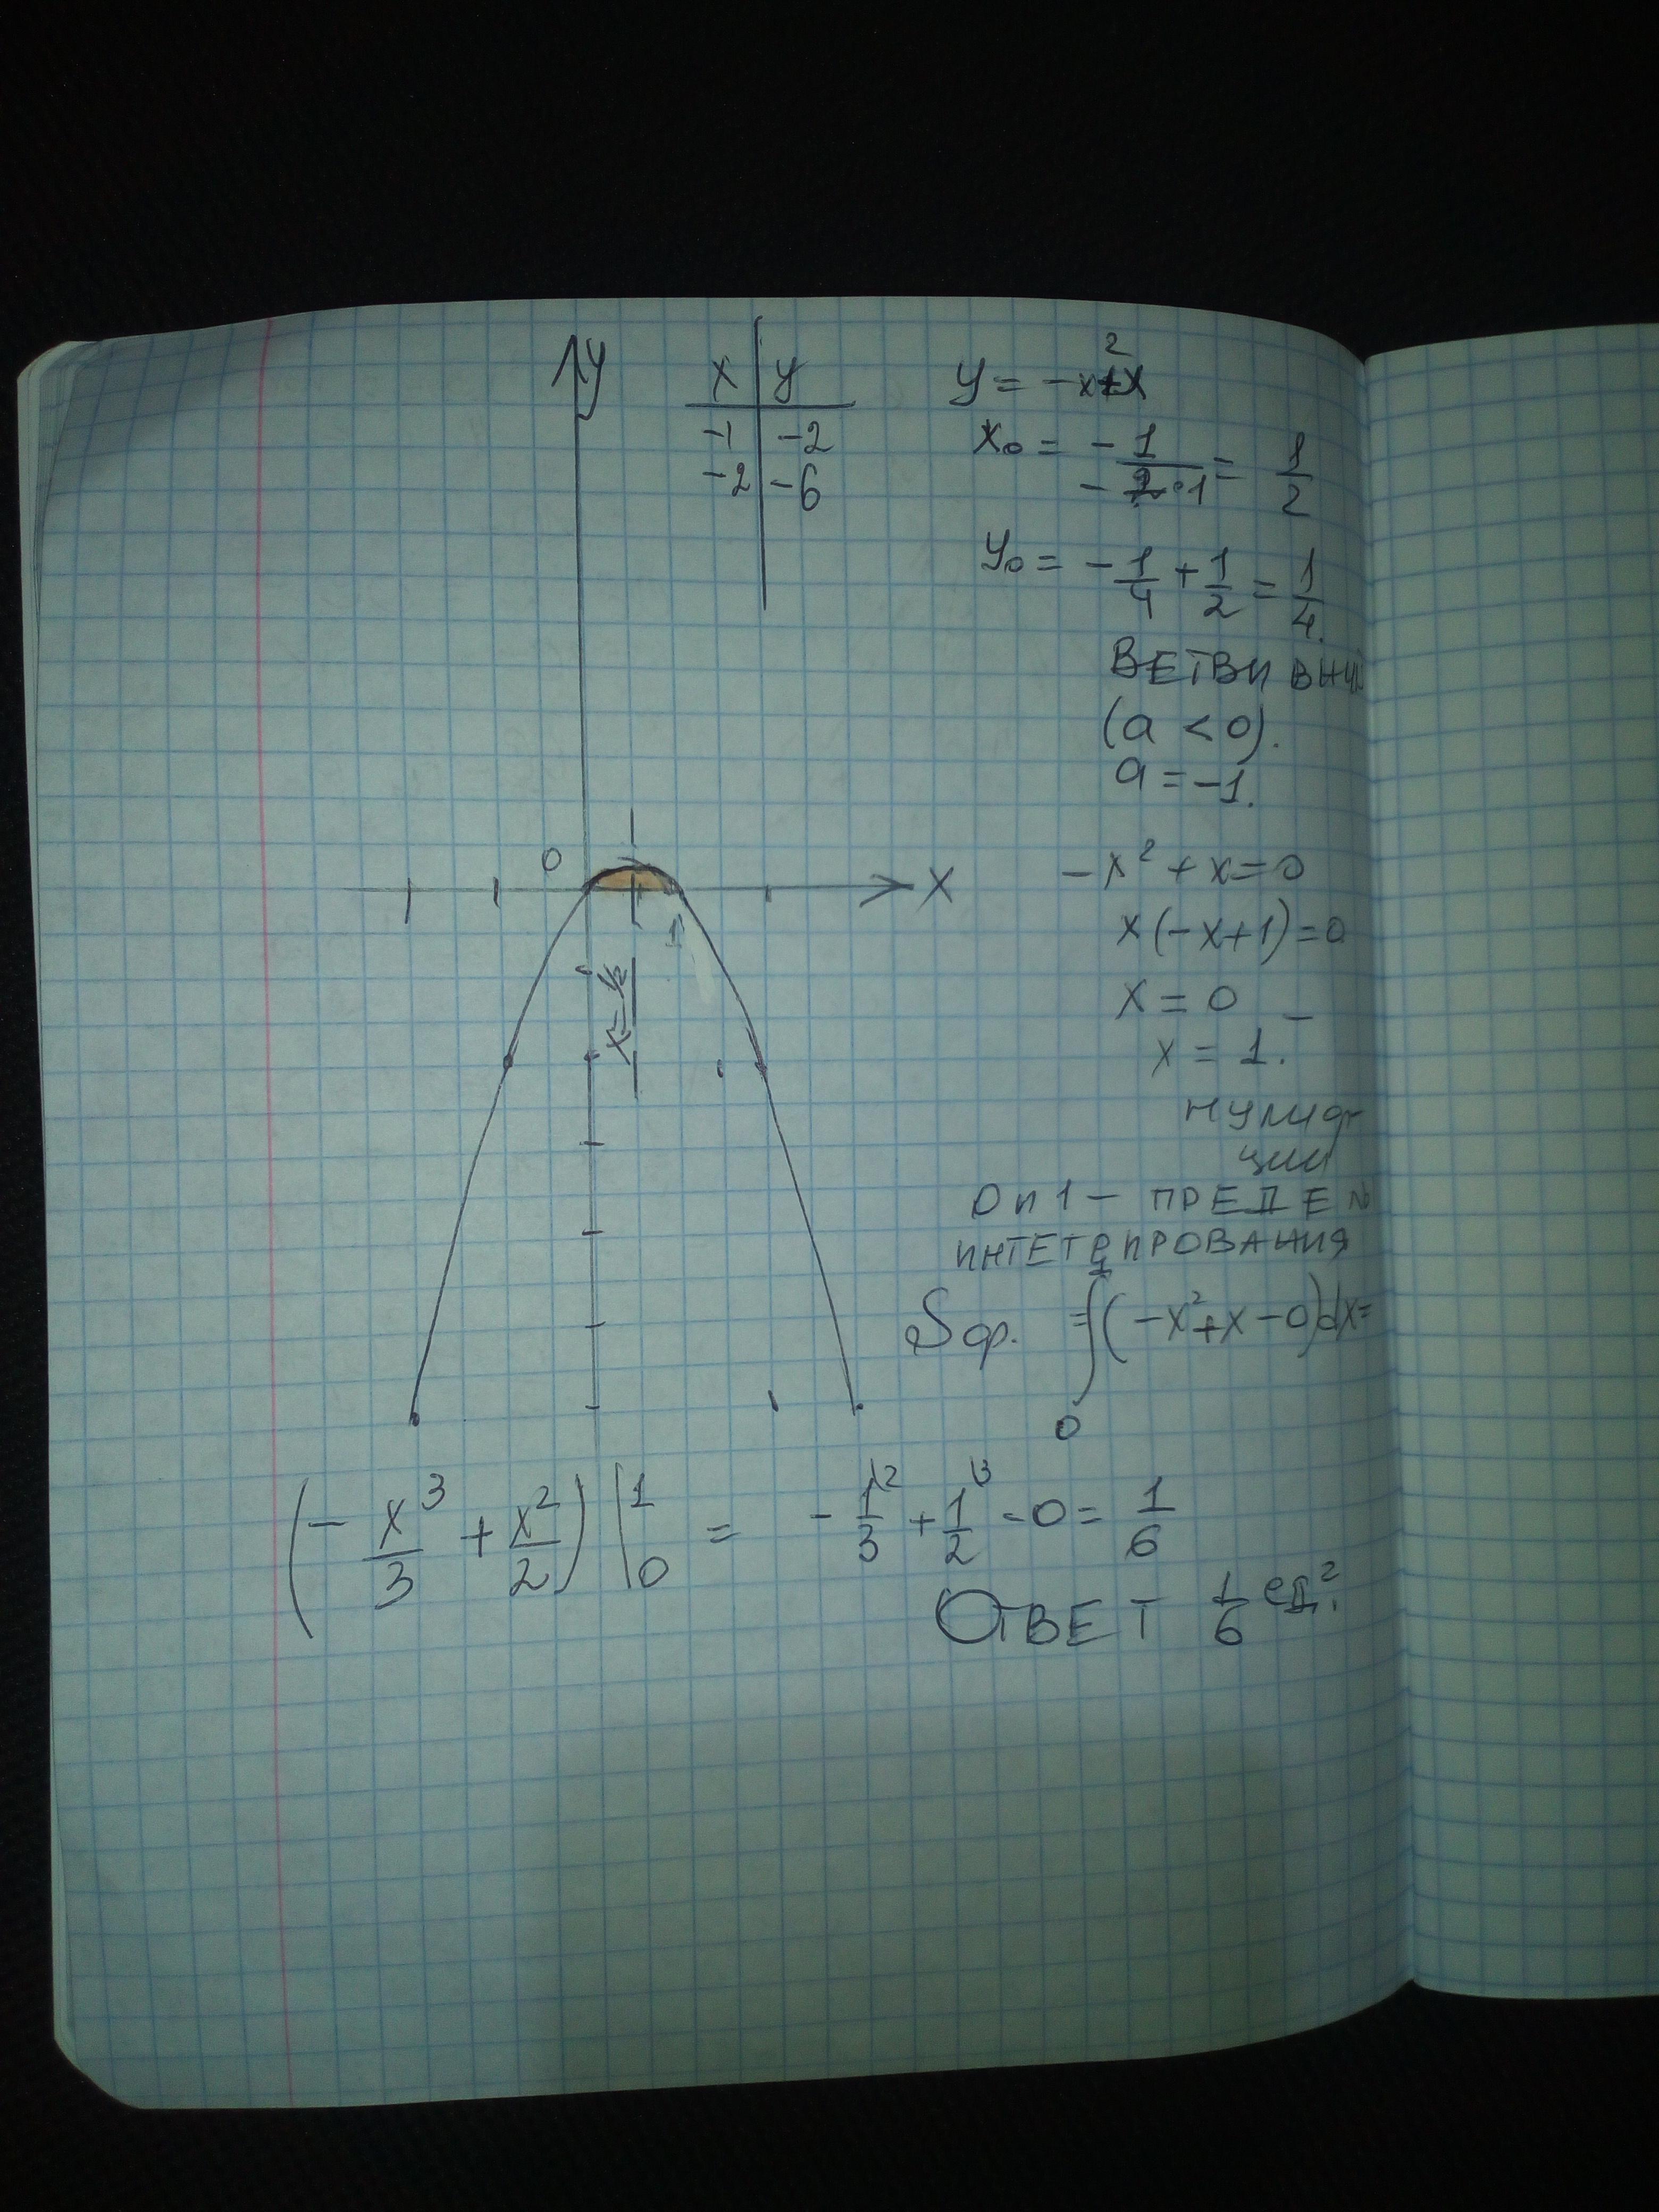 y
x y
-1 -2
-2 -6
y = -x²+x
x₀ = -1/(-2·1) = 1/2
y₀ = -1/4 + 1/2 = 1/4.
ВЕТВИ ВНИЗ
(a < 0).
a = -1.
0
x
1
x=1/2
-x² + x = 0
x(-x+1) = 0
x = 0 –
x = 1.
нули ф-
ции
0 и 1 – ПРЕДЕЛЫ
ИНТЕГРИРОВАНИЯ
Sф. = ∫₀¹(-x²+x-0)dx=
(-x³/3 + x²/2)|₀¹ = -1/3\² + 1/2\³ - 0 = 1/6
ОТВЕТ 1/6 ед.²